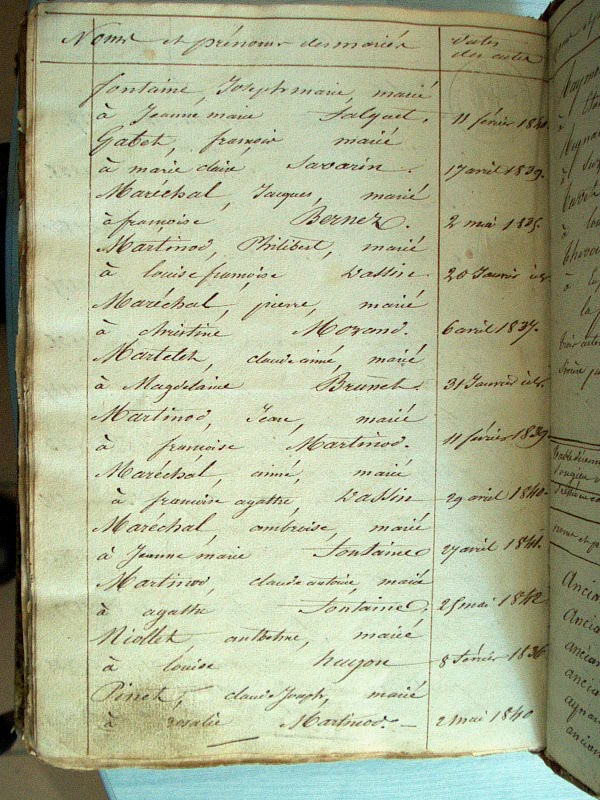 Noms et prénoms des mariés dates des actes
fontaine, Joseph marie, marié
à Jeanne marie Falquet. 11 février 1840.
Gabet, françois marié
à marie claire Savarin. 17 avril 1839.
Maréchal, Jacques, marié
à françoise Bernez. 2 mai 1835.
Martinod, Philibert, marié
à louise françoise Vassin 20 Janvier
Maréchal, pierre, marié
à christine Morand. 6 avril 1837.
Martelet, claude aimé, marié
à Magdelaine Brunet. 31 Janvier
Martinod, Jean, marié
à françoise Martinod. 11 février 1839
Maréchal, aimé, marié
à françoise agathe, Vassin 29 avril 1840.
Maréchal, ambroise, marié
à Jeanne marie Fontaine 27 avril 1841.
Martinod, claude antoine, marié
à agathe Fontaine, 25 mai 1842
Niollet antoine, marié
à louise hugon 8 février 1836
Pinet, claude Joseph, marié
à rosalie Martinod. 2 mai 1840